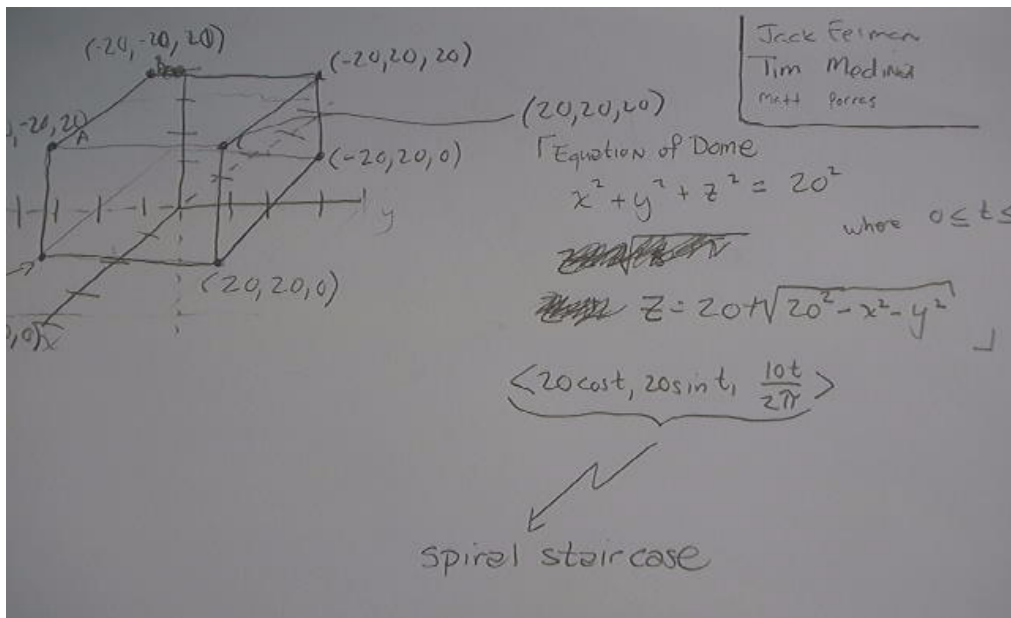 (-20, -20, 20)
(-20, 20, 20)
, -20, 20)
A
(20, 20, 20)
(-20, 20, 0)
y
(20, 20, 0)
, 0)
x
Jack
Tim Medina
Matt Porres
Equation of Dome
x² + y² + z² = 20²
where 0 ≤ t ≤
z = 20 + √20² - x² - y²
<20cost, 20sint, 10t/2π>
spiral staircase